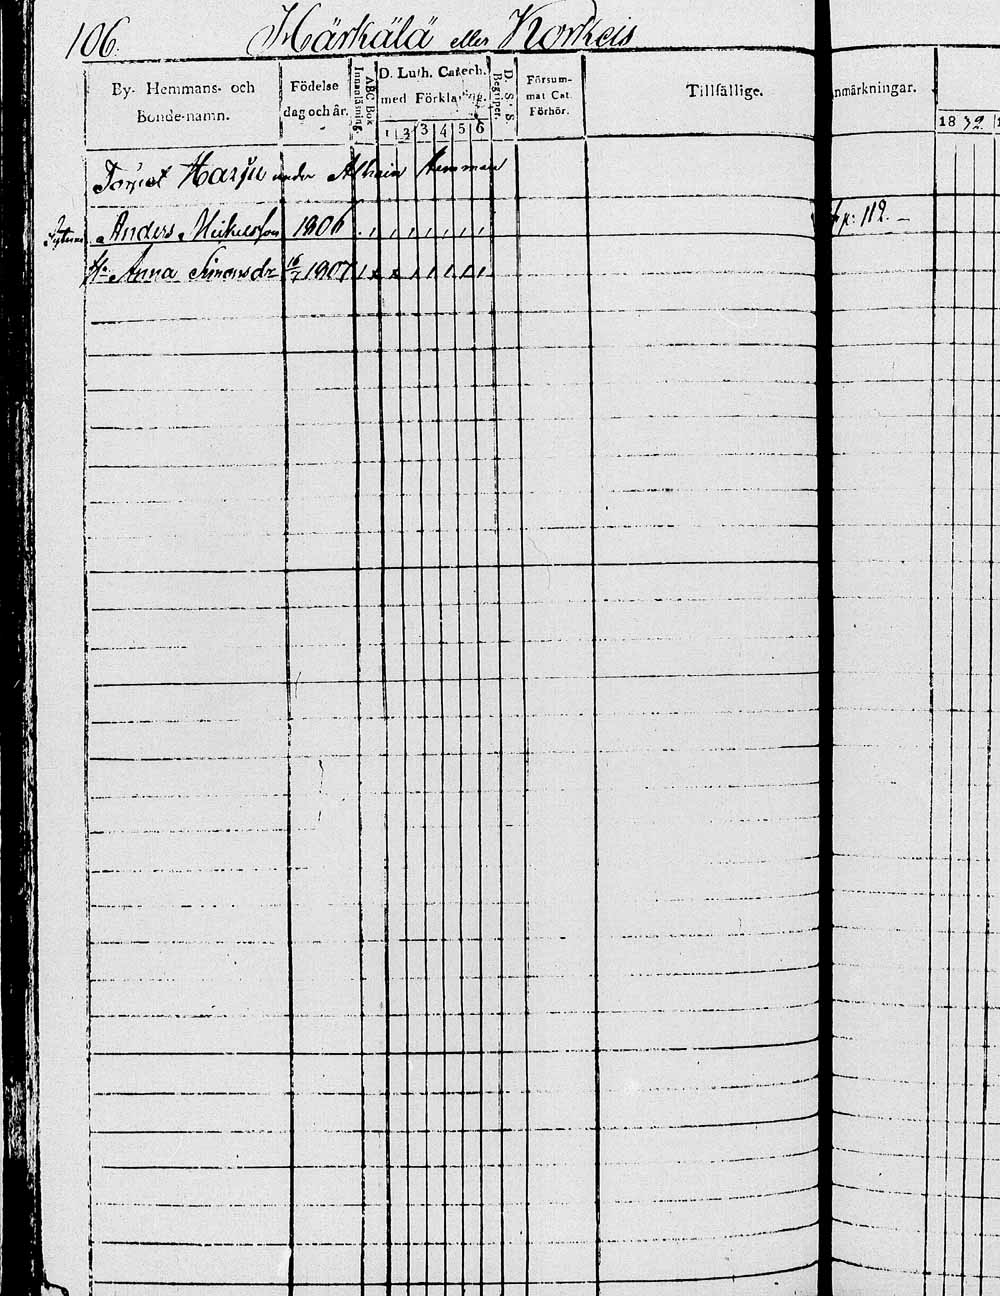 106.
Härkälä eller Korkeis
By- Hemmans- och Bonde-namn.
Födelse dag och år.
ABC Bok Innanläsning.
D. Luth. Catech. med Förklaring.
1 2 3 4 5 6
D. S. S. Begriper.
Försum- mat Cat. Förhör.
Tillfällige.
nmärkningar.
18 32
Torpet Harju under Hemman
Anders Mickelsson 1806
p: 112.
Anna Simonsdr 16/7 1807